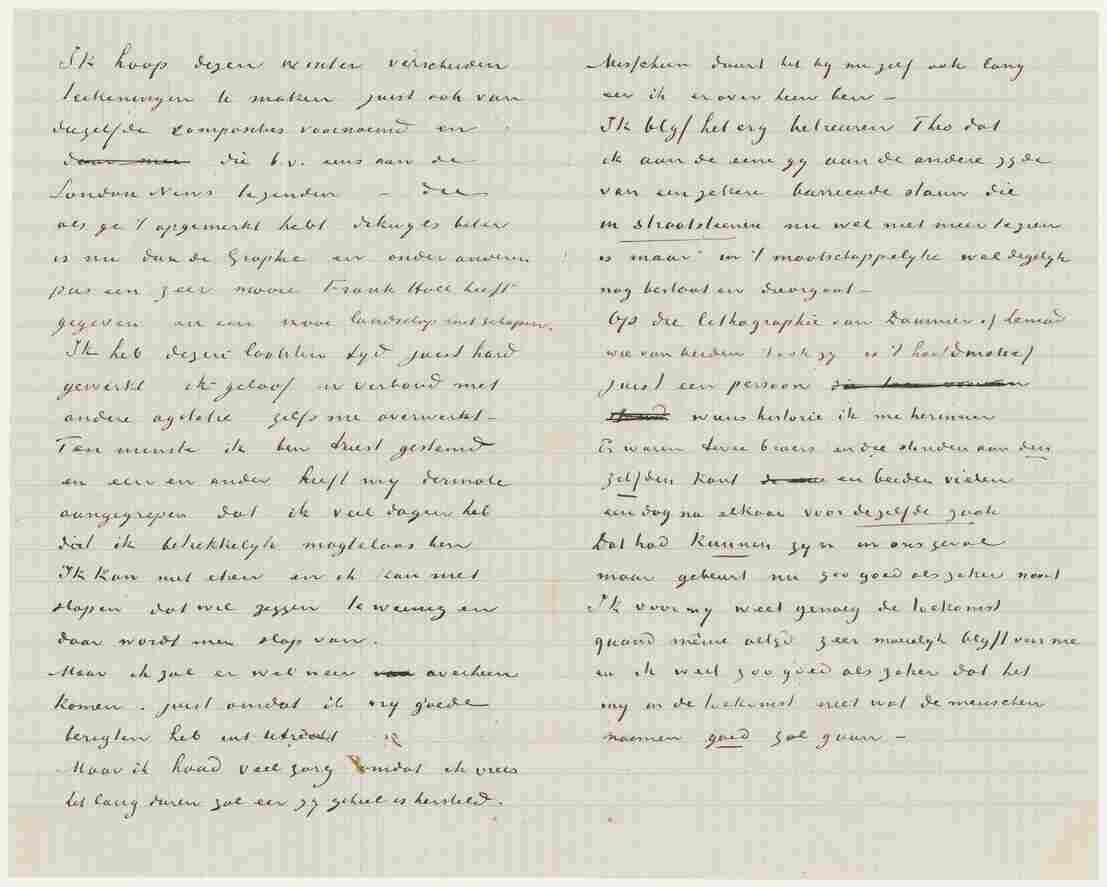 Ik hoop dezen winter verscheiden
teekeningen te maken juist ook van
diezelfde composities voornoemd en
daar mee die b.v. eens aan de
London News te zenden – die
als ge 't opgemerkt hebt dikwijls beter
is nu dan de Graphic en onder anderen
pas een zeer mooie Frank Holl heeft
gegeven en een mooi landschap met schapen.
Ik heb dezen laatsten tyd juist hard
gewerkt ik geloof in verband met
andere agitatie zelfs me overwerkt –
Ten minste ik ben triest gestemd
en een en ander heeft my dermate
aangegrepen dat ik veel dagen heb
dat ik betrekkelyk magteloos ben
Ik kan niet eten en ik kan niet
slapen dat wil zeggen te weinig en
daar wordt men slap van.
Maar ik zal er wel weer overheen
komen. juist omdat ik vry goede
berigten heb uit Utrecht
Maar ik houd veel zorg omdat ik vrees
het lang duren zal eer zy geheel is hersteld.
Misschien duurt het by me zelf ook lang
eer ik er over heen ben –
Ik blyf het erg betreuren Theo dat
ik aan de eene gy aan de andere zyde
van een zekere barricade staan die
in straatsteenen nu wel niet meer te zien
is maar in 't maatschappelyke wel degelyk
nog bestaat en doorgaat –
Op die lithographie van Daumier of Lemud
wie van beiden 't ook zy is 't hoofdmotief
juist een persoon
wiens historie ik me herinner
Er waren twee broers en die stonden aan den
zelfden kant en beiden vielen
een dag na elkaar voor dezelfde zaak
Dat had kunnen zyn in ons geval
maar gebeurt nu zoo goed als zeker nooit
Ik voor my weet genoeg de toekomst
quand même altyd zeer moeielyk blyft voor me
en ik weet zoo goed als zeker dat het
my in de toekomst niet wat de menschen
noemen goed zal gaan –